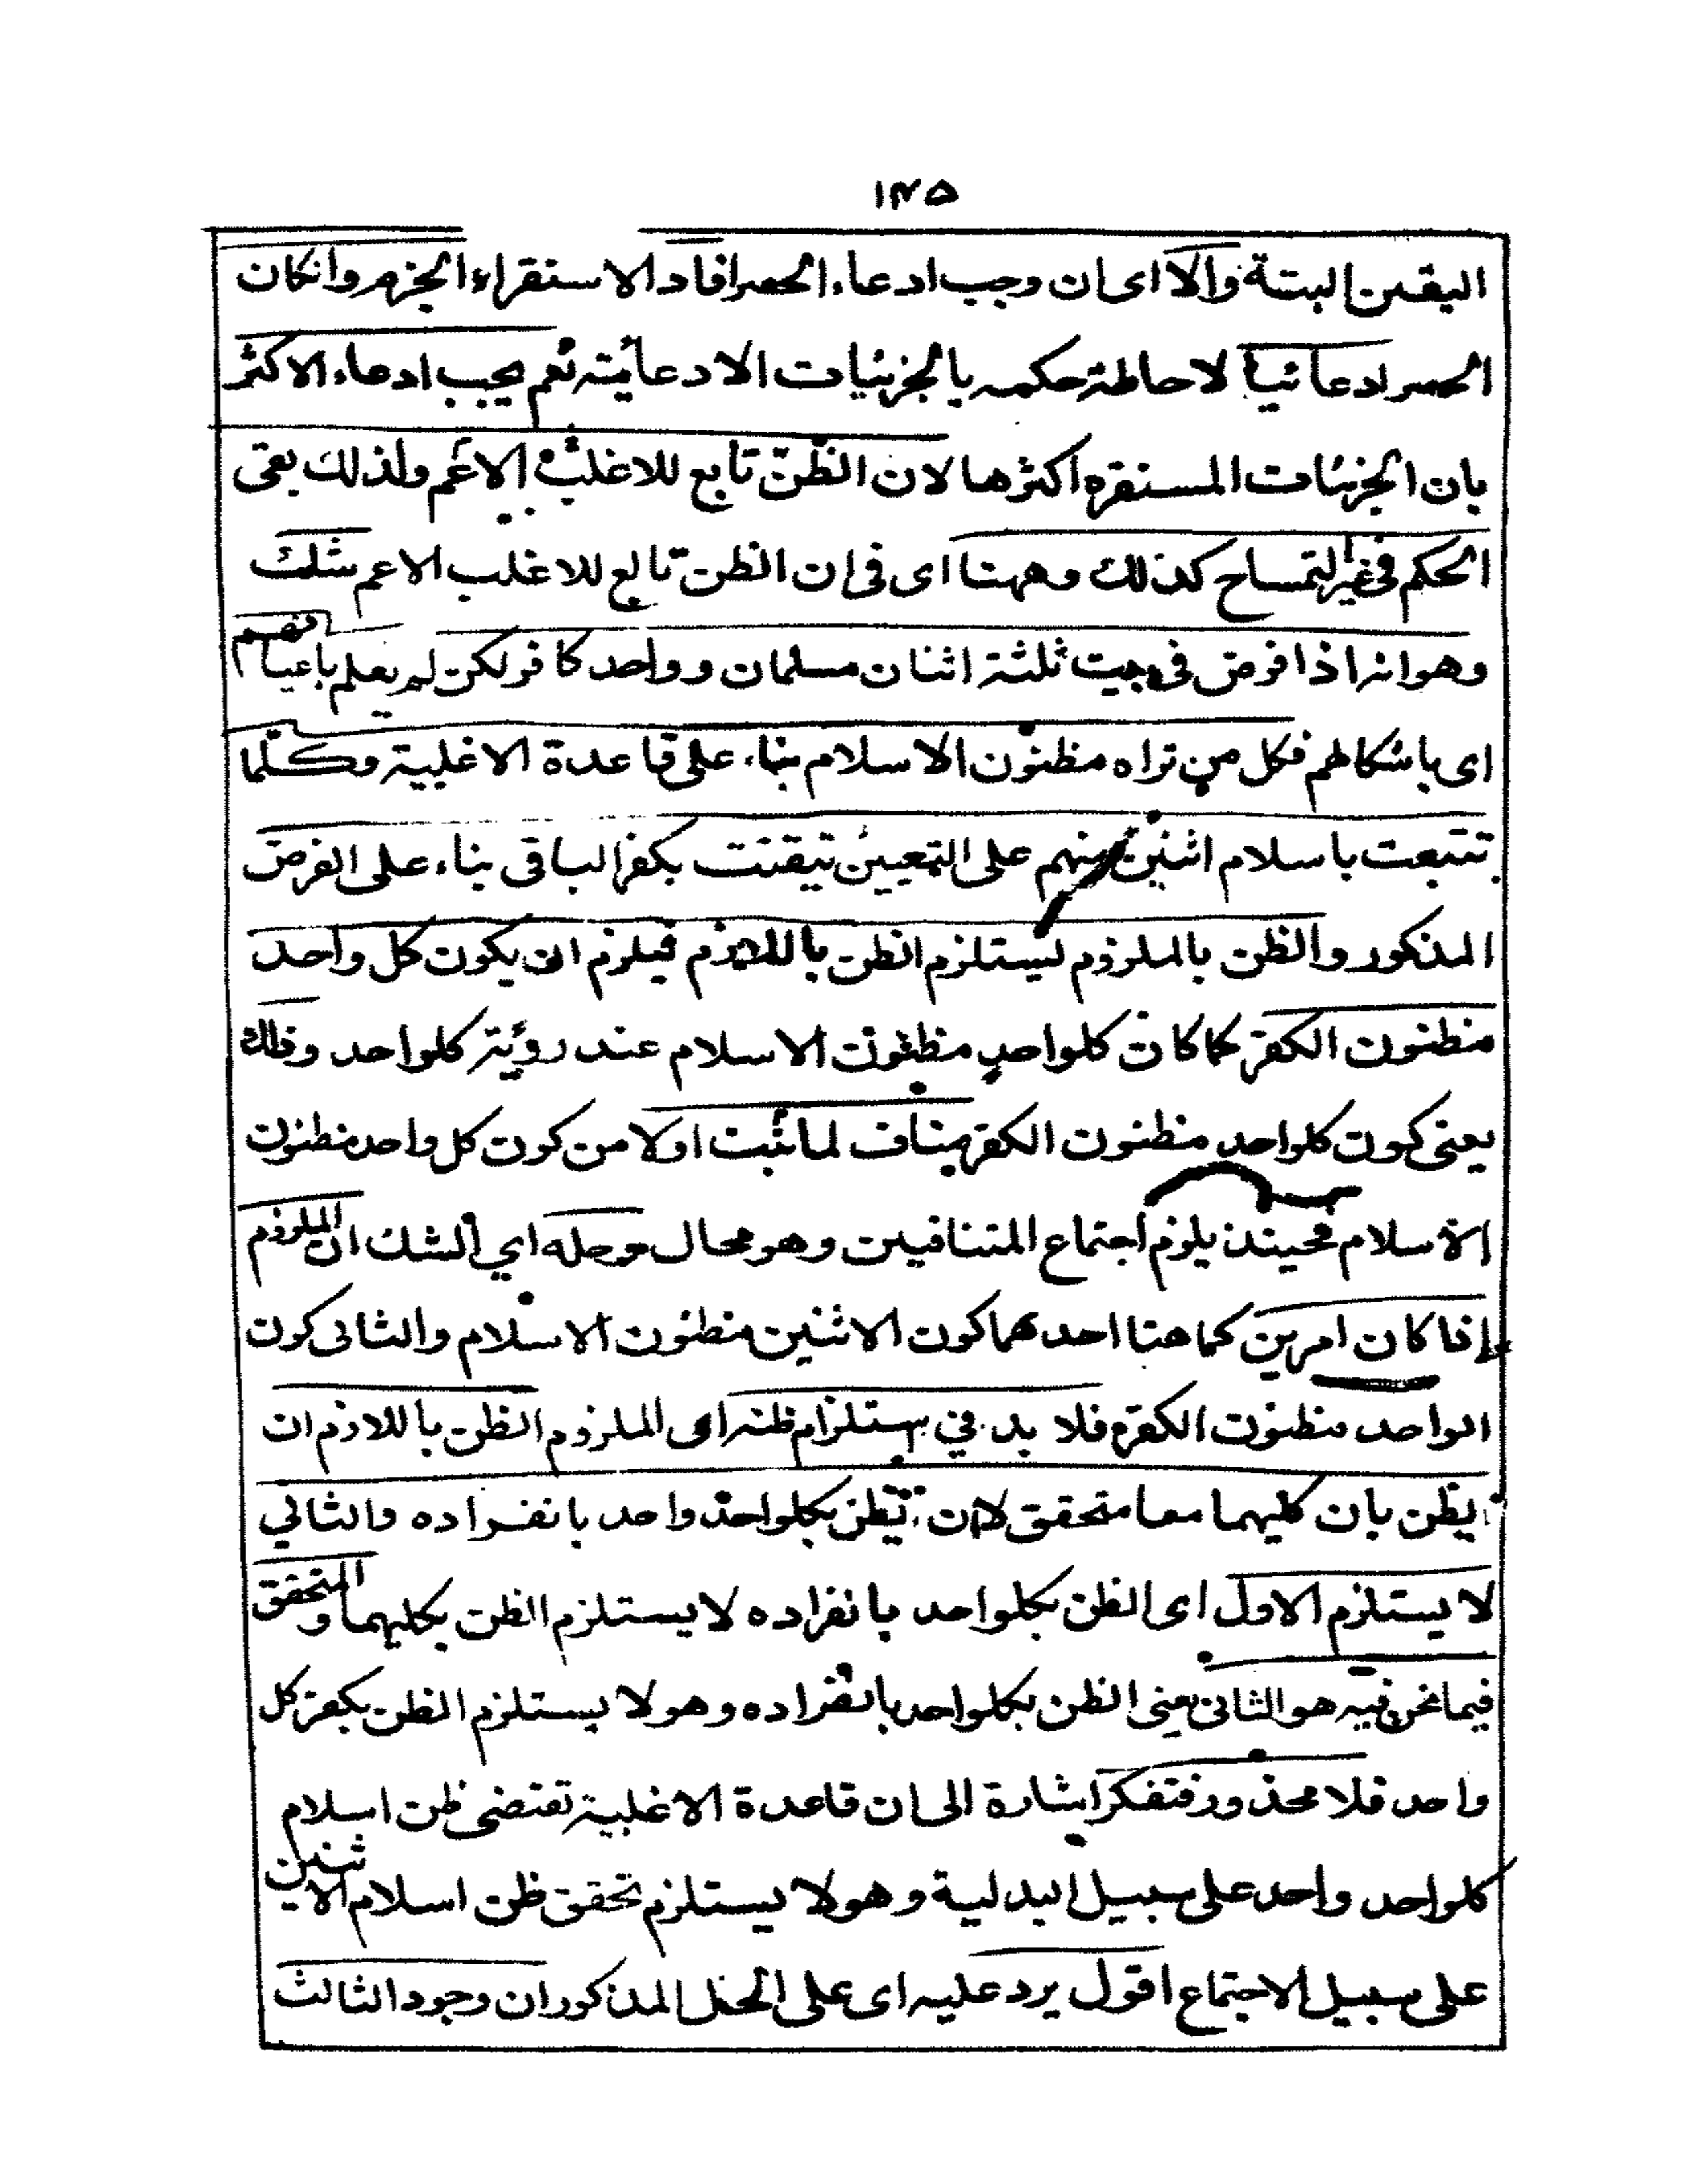 ١٣٥
اليقين البتة والا اى ان وجب ادعاء الحصر افاد الاستقراء الجزم وانكان
الحصر ادعائيا لاحاطة حكمه بالجزئيات الادعائية نعم يجب ادعاء الاكثر
بان الجزئيات المستقرة اكثرها لان الظن تابع للاغلب الاعم ولذلك بقى
الحكم فى غير التمساح كذلك وههنا اى فى ان الظن تابع للاغلب الاعم شك
وهو انه اذا فرض فى بيت ثلثة اثنان مسلمان وواحد كافر لكن لم يعلم باعيانهم
اى باشكالهم فكل من تراه مظنون الاسلام بناء على قاعدة الاغلبية وكلما
تتبعت باسلام اثنين منهم على التعيين تيقنت بكفر الباقى بناء على الفرض
المذكور والظن بالملزوم يستلزم الظن باللازم فيلزم ان يكون كل واحد
مظنون الكفر كما كان كلواحد مظنون الاسلام عند روية كلواحد وذلك
يعنى كون كلواحد مظنون الكفر مناف لما ثبت اولا من كون كل واحد مظنون
الاسلام فحينئذ يلزم اجتماع المتنافيين وهو محال وحله اي الشك ان الملزوم
إذا كان امرين كما هنا احدهما كون الاثنين مظنون الاسلام والثانى كون
الواحد مظنون الكفر فلا بد في استلزام ظنه اى الملزوم الظن باللازم ان
يظن بان كليهما معا متحقق لان يظن بكلواحد واحد بانفراده والثاني
لا يستلزم الاول اى الظن بكلواحد بانفراده لا يستلزم الظن بكليهما والمتحقق
فيما نحن فيه هو الثانى يعنى الظن بكلواحد بانفراده وهو لا يستلزم الظن بكفر كل
واحد فلا محذور فتفكر اشارة الى ان قاعدة الاغلبية تقتضى ظن اسلام
كلواحد واحد على سبيل البدلية وهو لا يستلزم تحقق ظن اسلام الاثنين
على سبيل الاجتماع اقول يرد عليه اى على الحل المذكور ان وجود الثالث